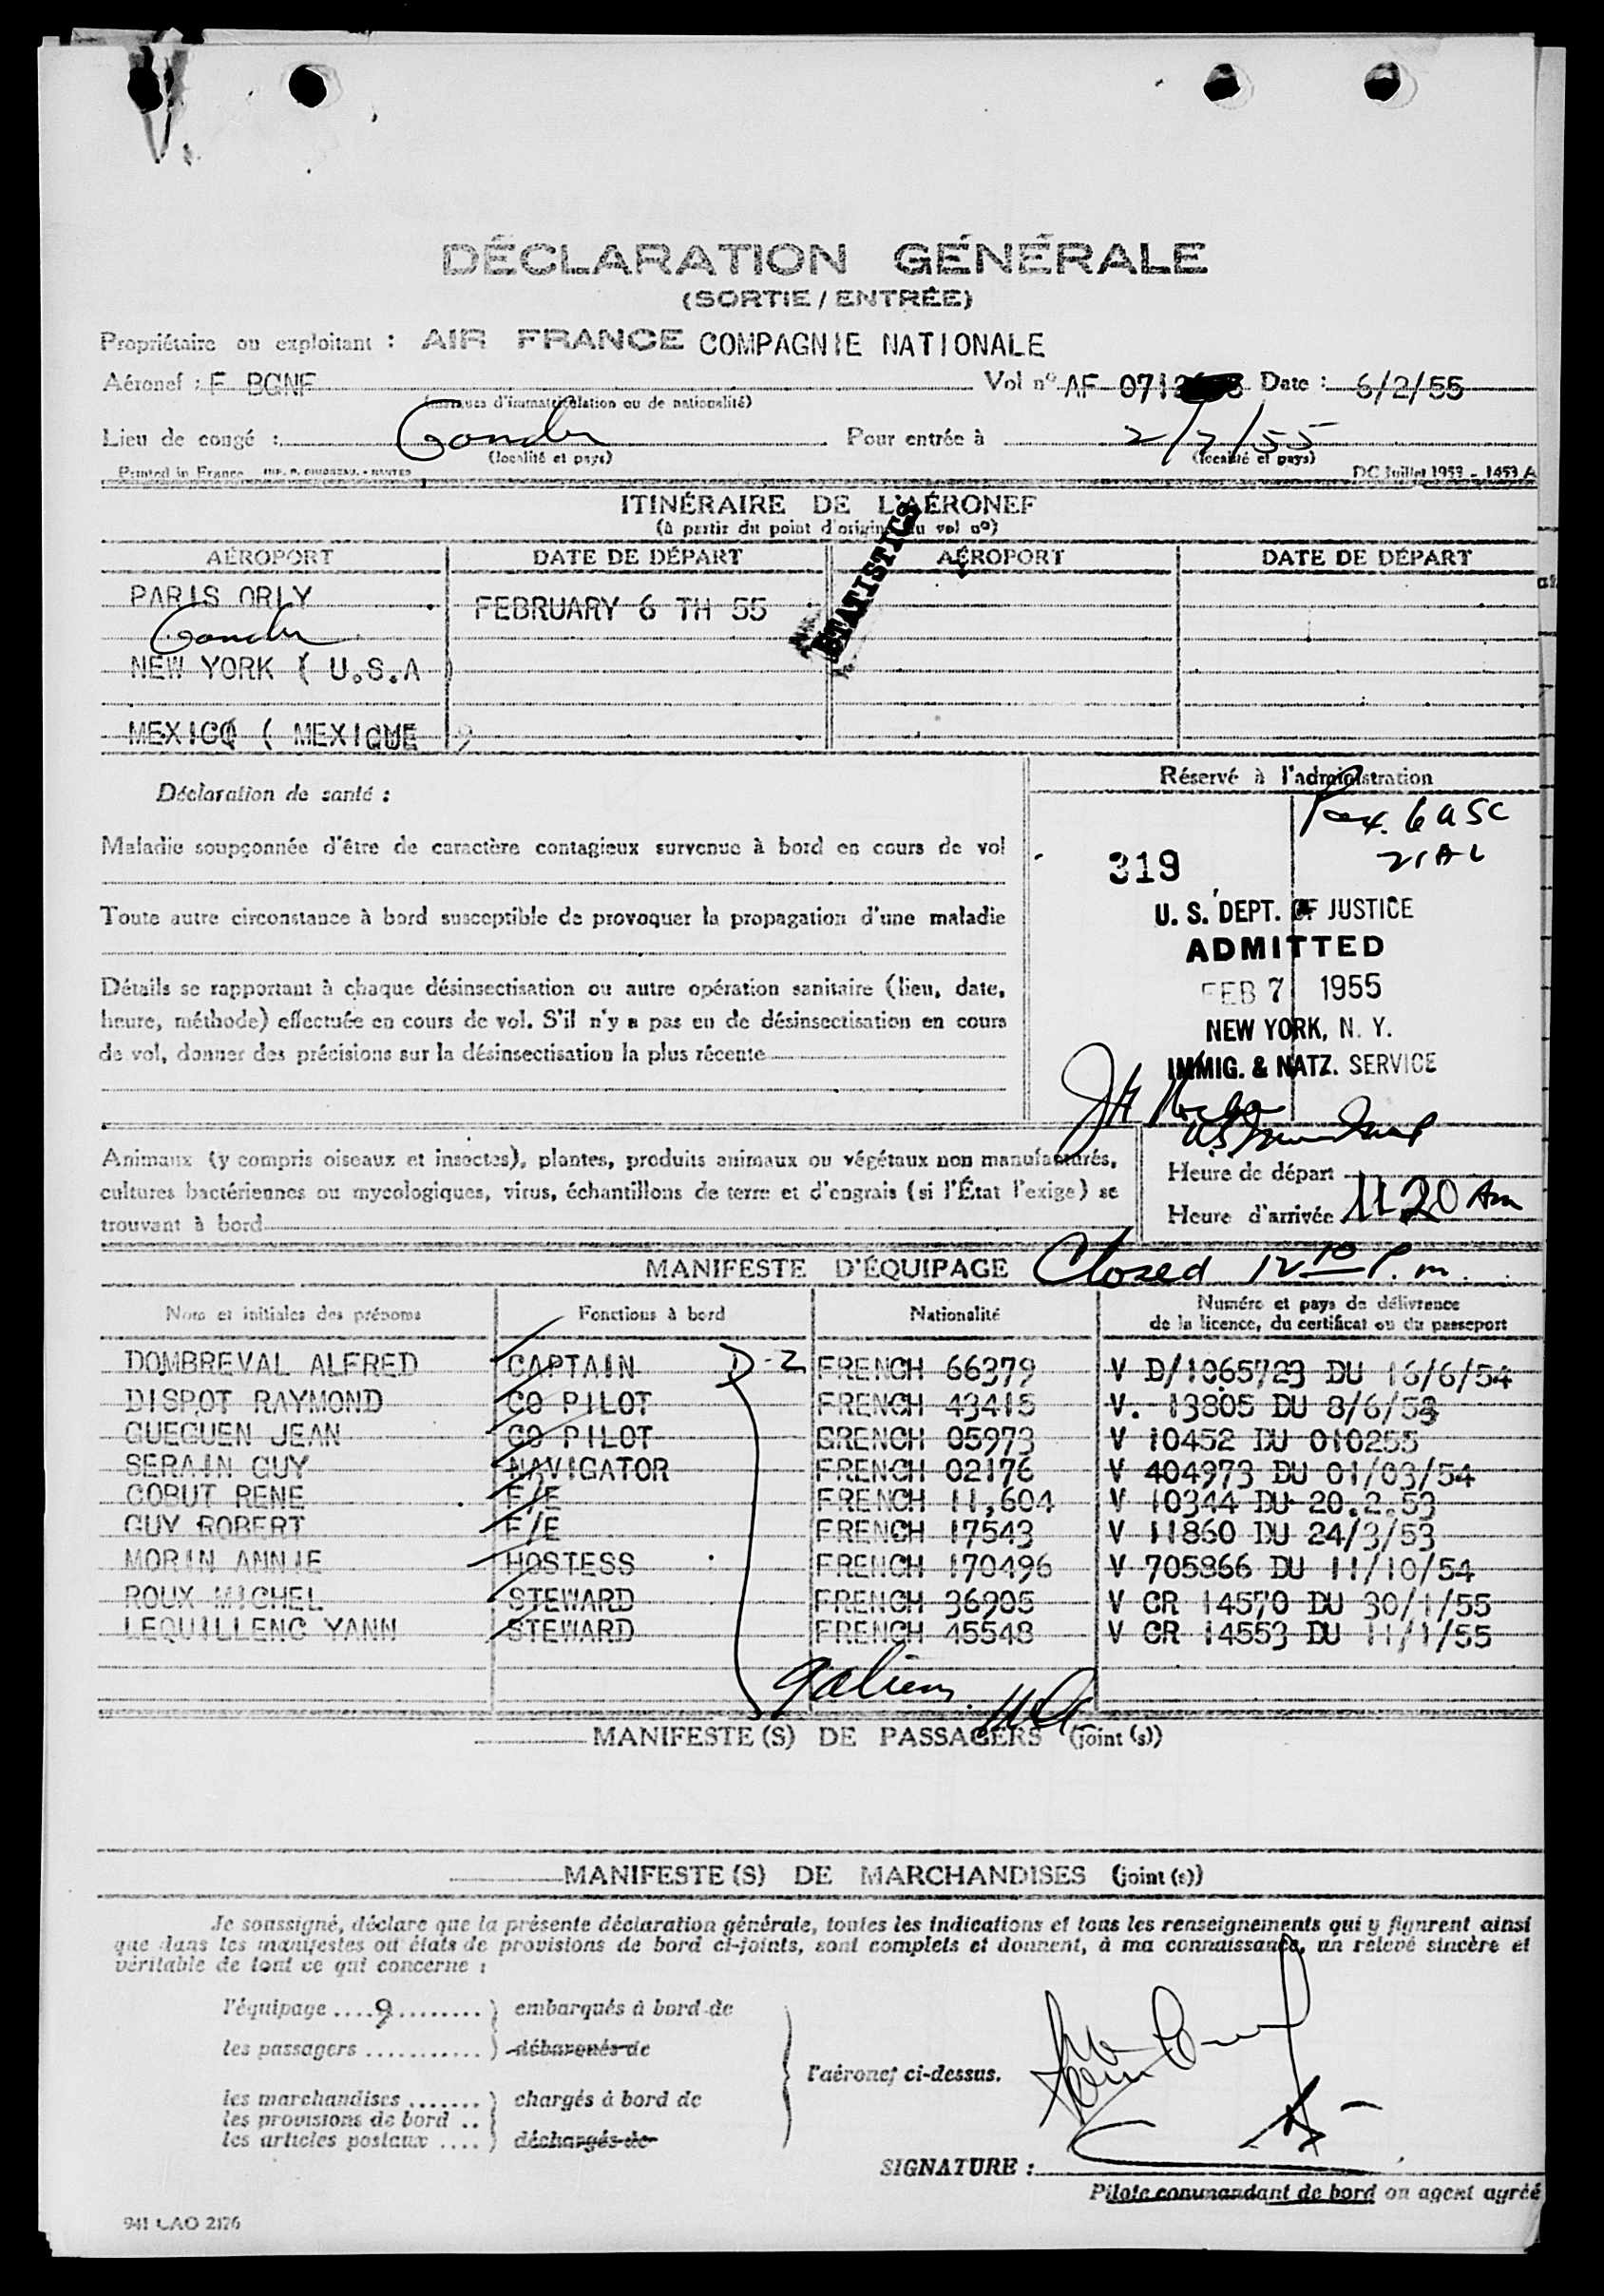 DÉCLARATION GÉNÉRALE
(SORTIE / ENTRÉE)
Propriétaire ou exploitant : AIR FRANCE COMPAGNIE NATIONALE
Aéronef : F BGNF Vol nº AF 0712 Date : 6/2/55
(marques d'immatriculation ou de nationalité)
Lieu de congé : Gander Pour entrée à 2/7/55
(localité et pays) (localité et pays)
Printed in France DC Juillet 1953 - 1453 A
ITINÉRAIRE DE L'AÉRONEF
(à partir du point d'origine du vol nº)
STATISTICS
AÉROPORT DATE DE DÉPART AÉROPORT DATE DE DÉPART
PARIS ORLY FEBRUARY 6 TH 55
Gander
NEW YORK ( U.S.A )
MEXICO ( MEXIQUE )
Déclaration de santé :
Réservé à l'administration
Pax. 6 USC
21 AL
Maladie soupçonnée d'être de caractère contagieux survenue à bord en cours de vol
319
Toute autre circonstance à bord susceptible de provoquer la propagation d'une maladie
U. S. DEPT. OF JUSTICE
ADMITTED
FEB 7 1955
NEW YORK, N. Y.
IMMIG. & NATZ. SERVICE
Détails se rapportant à chaque désinsectisation ou autre opération sanitaire (lieu, date,
heure, méthode) effectuée en cours de vol. S'il n'y a pas eu de désinsectisation en cours
de vol, donner des précisions sur la désinsectisation la plus récente
Animaux (y compris oiseaux et insectes), plantes, produits animaux ou végétaux non manufacturés,
cultures bactériennes ou mycologiques, virus, échantillons de terre et d'engrais (si l'État l'exige) se
trouvant à bord
Heure de départ
Heure d'arrivée 11 20 Am
MANIFESTE D'ÉQUIPAGE Closed 12 10 P. m.
Nom et initiales des prénoms Fonctions à bord Nationalité Numéro et pays de délivrence
de la licence, du certificat ou du passeport
DOMBREVAL ALFRED CAPTAIN D-2 FRENCH 66379 V D/1065723 DU 16/6/54
DISPOT RAYMOND CO PILOT FRENCH 43415 V. 13805 DU 8/6/53
GUEGUEN JEAN CO PILOT GRENCH 05973 V 10452 DU 010255
SERAIN GUY NAVIGATOR FRENCH 02176 V 404973 DU 01/03/54
GOBUT RENE F/E FRENCH 11,604 V 10344 DU 20.2.53
GUY ROBERT F/E FRENCH 17543 V 11860 DU 24/3/53
MORIN ANNIE HOSTESS FRENCH 170496 V 705866 DU 11/10/54
ROUX MICHEL STEWARD FRENCH 36905 V CR 14570 DU 30/1/55
LEQUILLENC YANN STEWARD FRENCH 45548 V CR 14553 DU 11/1/55
9 aliens
MANIFESTE (S) DE PASSAGERS (joint (s))
MANIFESTE (S) DE MARCHANDISES (joint (s))
Je soussigné, déclare que la présente déclaration générale, toutes les indications et tous les renseignements qui y figurent ainsi
que dans les manifestes ou états de provisions de bord ci-joints, sont complets et donnent, à ma connaissance, un relevé sincère et
véritable de tout ce qui concerne :
l'équipage ....9........ ) embarqués à bord de
les passagers ........... ) débarqués de
l'aéronef ci-dessus.
les marchandises ....... ) chargés à bord de
les provisions de bord ..
les articles postaux .... ) déchargés de
SIGNATURE :
Pilote commandant de bord ou agent agréé
941 CAO 2176